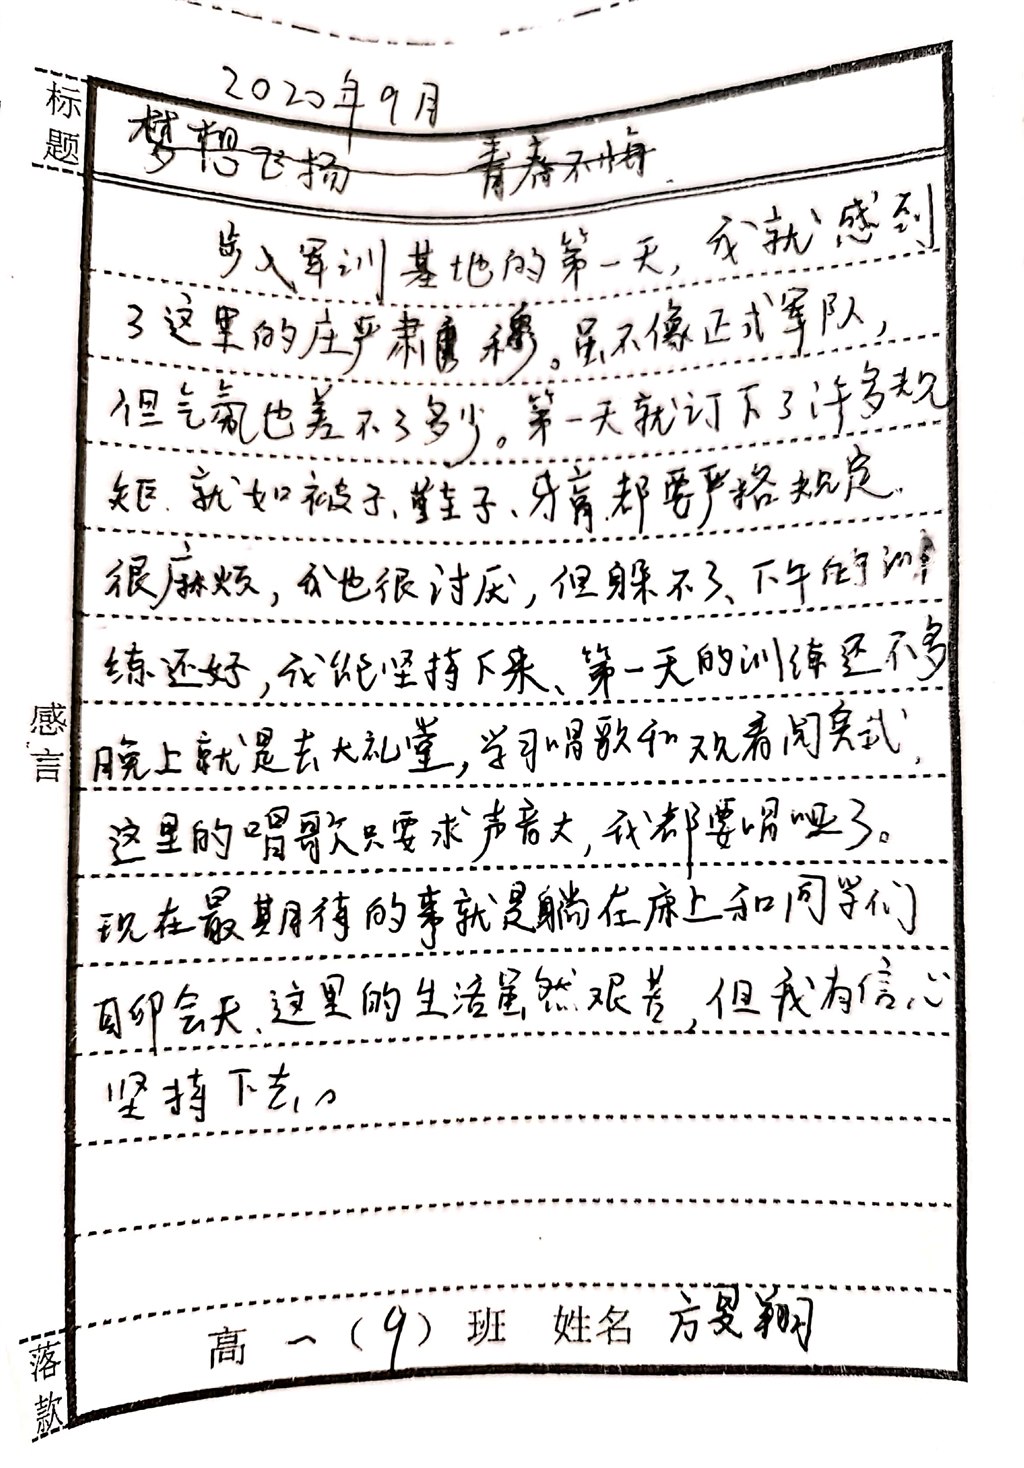 标题
2020年9月
梦想飞扬 青春不悔.
步入军训基地的第一天,我就感到
了这里的庄严肃穆。虽不像正式军队,
但气氛也差不了多少。第一天就订下了许多规
矩.就如被子、鞋子、牙膏.都要严格规定.
很麻烦,我也很讨厌,但躲不了、下午的训
练还好,我能坚持下来、第一天的训练还不多
晚上就是去大礼堂,学习唱歌和观看阅兵式,
这里的唱歌只要求声音大,我都要唱哑了。
现在最期待的事就是躺在床上和同学们
聊会天、这里的生活虽然艰苦,但我有信心
坚持下去。
感言
高一(9)班 姓名 方昊翔
落款